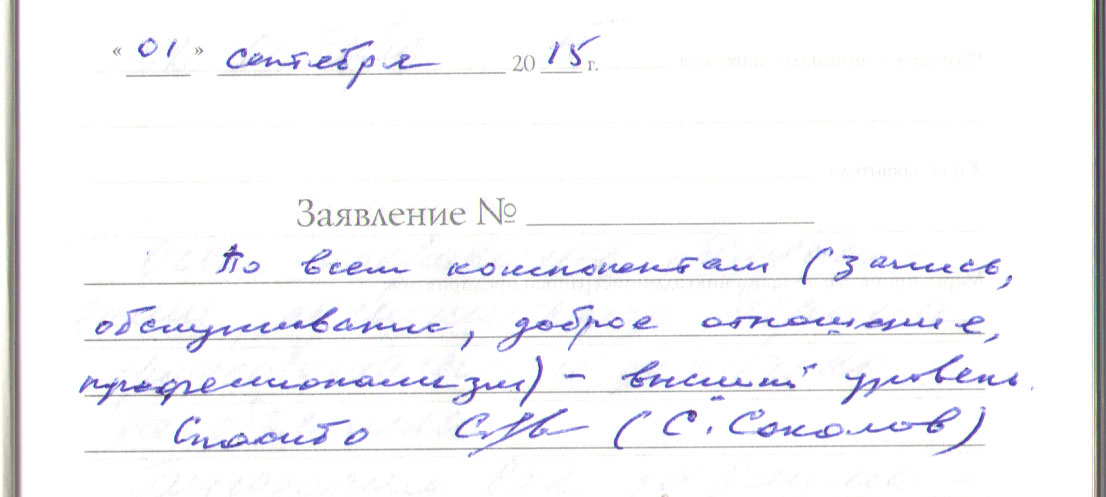 « 01 » сентября 2015 г.
Заявление №
По всем компонентам (запись,
обслуживание, доброе отношение,
профессионализм) – высший уровень.
Спасибо (С. Соколов)